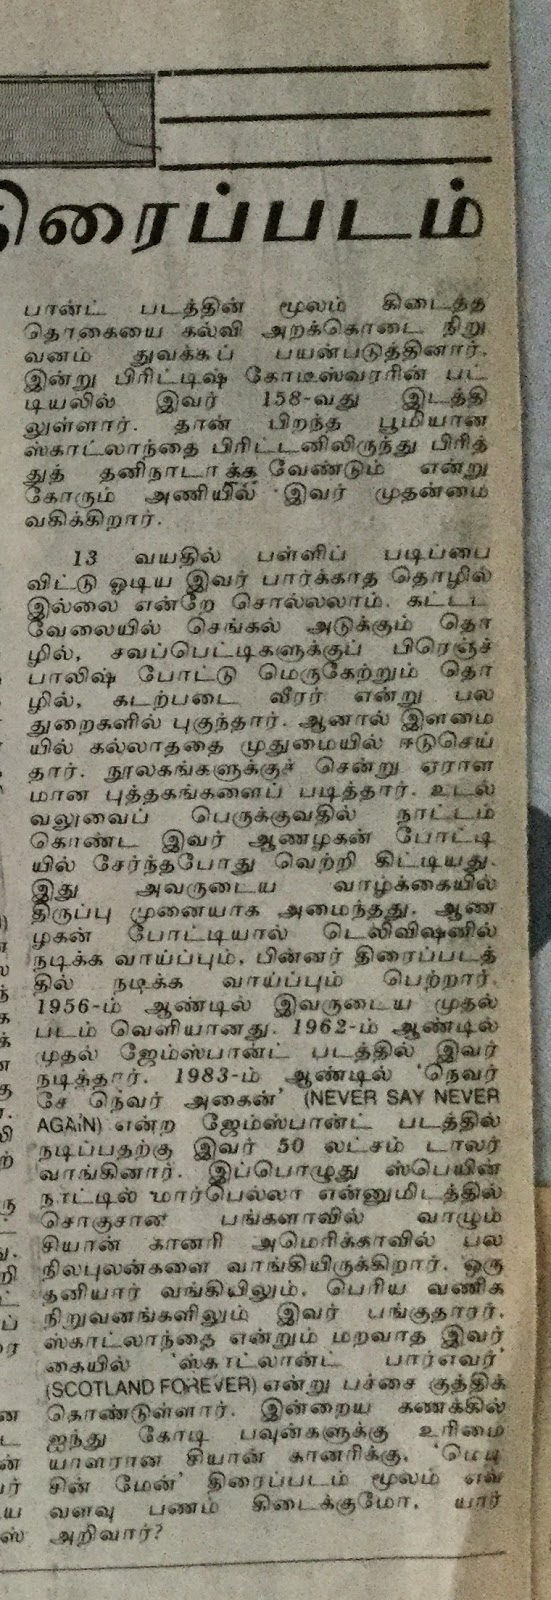 திரைப்படம்
பான்ட் படத்தின் மூலம் கிடைத்த
தொகையை கல்வி அறக்கொடை நிறு
வனம் துவக்கப் பயன்படுத்தினார்.
இன்று பிரிட்டிஷ் கோடீஸ்வரரின் பட்
டியலில் இவர் 158-வது இடத்தி
லுள்ளார். தான் பிறந்த பூமியான
ஸ்காட்லாந்தை பிரிட்டனிலிருந்து பிரித்
துத் தனிநாடாக்க வேண்டும் என்று
கோரும் அணியில் இவர் முதன்மை
வகிக்கிறார்.
13 வயதில் பள்ளிப் படிப்பை
விட்டு ஓடிய இவர் பார்க்காத தொழில்
இல்லை என்றே சொல்லலாம். கட்டட
வேலையில் செங்கல் அடுக்கும் தொ
ழில், சவப்பெட்டிகளுக்குப் பிரெஞ்ச்
பாலிஷ் போட்டு மெருகேற்றும் தொ
ழில், கடற்படை வீரர் என்று பல
துறைகளில் புகுந்தார். ஆனால் இளமை
யில் கல்லாததை முதுமையில் ஈடுசெய்
தார். நூலகங்களுக்குச் சென்று ஏராள
மான புத்தகங்களைப் படித்தார். உடல்
வலுவைப் பெருக்குவதில் நாட்டம்
கொண்ட இவர் ஆணழகன் போட்டி
யில் சேர்ந்தபோது வெற்றி கிட்டியது.
இது அவருடைய வாழ்க்கையில்
திருப்பு முனையாக அமைந்தது. ஆண
ழகன் போட்டியால் டெலிவிஷனில்
நடிக்க வாய்ப்பும், பின்னர் திரைப்படத்
தில் நடிக்க வாய்ப்பும் பெற்றார்.
1956-ம் ஆண்டில் இவருடைய முதல்
படம் வெளியானது. 1962-ம் ஆண்டில்
முதல் ஜேம்ஸ்பான்ட் படத்தில் இவர்
நடித்தார். 1983-ம் ஆண்டில் 'நெவர்
சே நெவர் அகைன்' (NEVER SAY NEVER
AGAIN) என்ற ஜேம்ஸ்பான்ட் படத்தில்
நடிப்பதற்கு இவர் 50 லட்சம் டாலர்
வாங்கினார். இப்பொழுது ஸ்பெயின்
நாட்டில் மார்பெல்லா என்னுமிடத்தில்
சொகுசான பங்களாவில் வாழும்
சியான் கானரி அமெரிக்காவில் பல
நிலபுலன்களை வாங்கியிருக்கிறார். ஒரு
தனியார் வங்கியிலும், பெரிய வணிக
நிறுவனங்களிலும் இவர் பங்குதாரர்.
ஸ்காட்லாந்தை என்றும் மறவாத இவர்
கையில் 'ஸ்காட்லாண்ட் பார்எவர்'
(SCOTLAND FOREVER) என்று பச்சை குத்திக்
கொண்டுள்ளார். இன்றைய கணக்கில்
ஐந்து கோடி பவுன்களுக்கு உரிமை
யாளரான சியான் கானரிக்கு, 'மெடி
சின் மேன்' திரைப்படம் மூலம் எவ்
வளவு பணம் கிடைக்குமோ, யார்
அறிவார்?